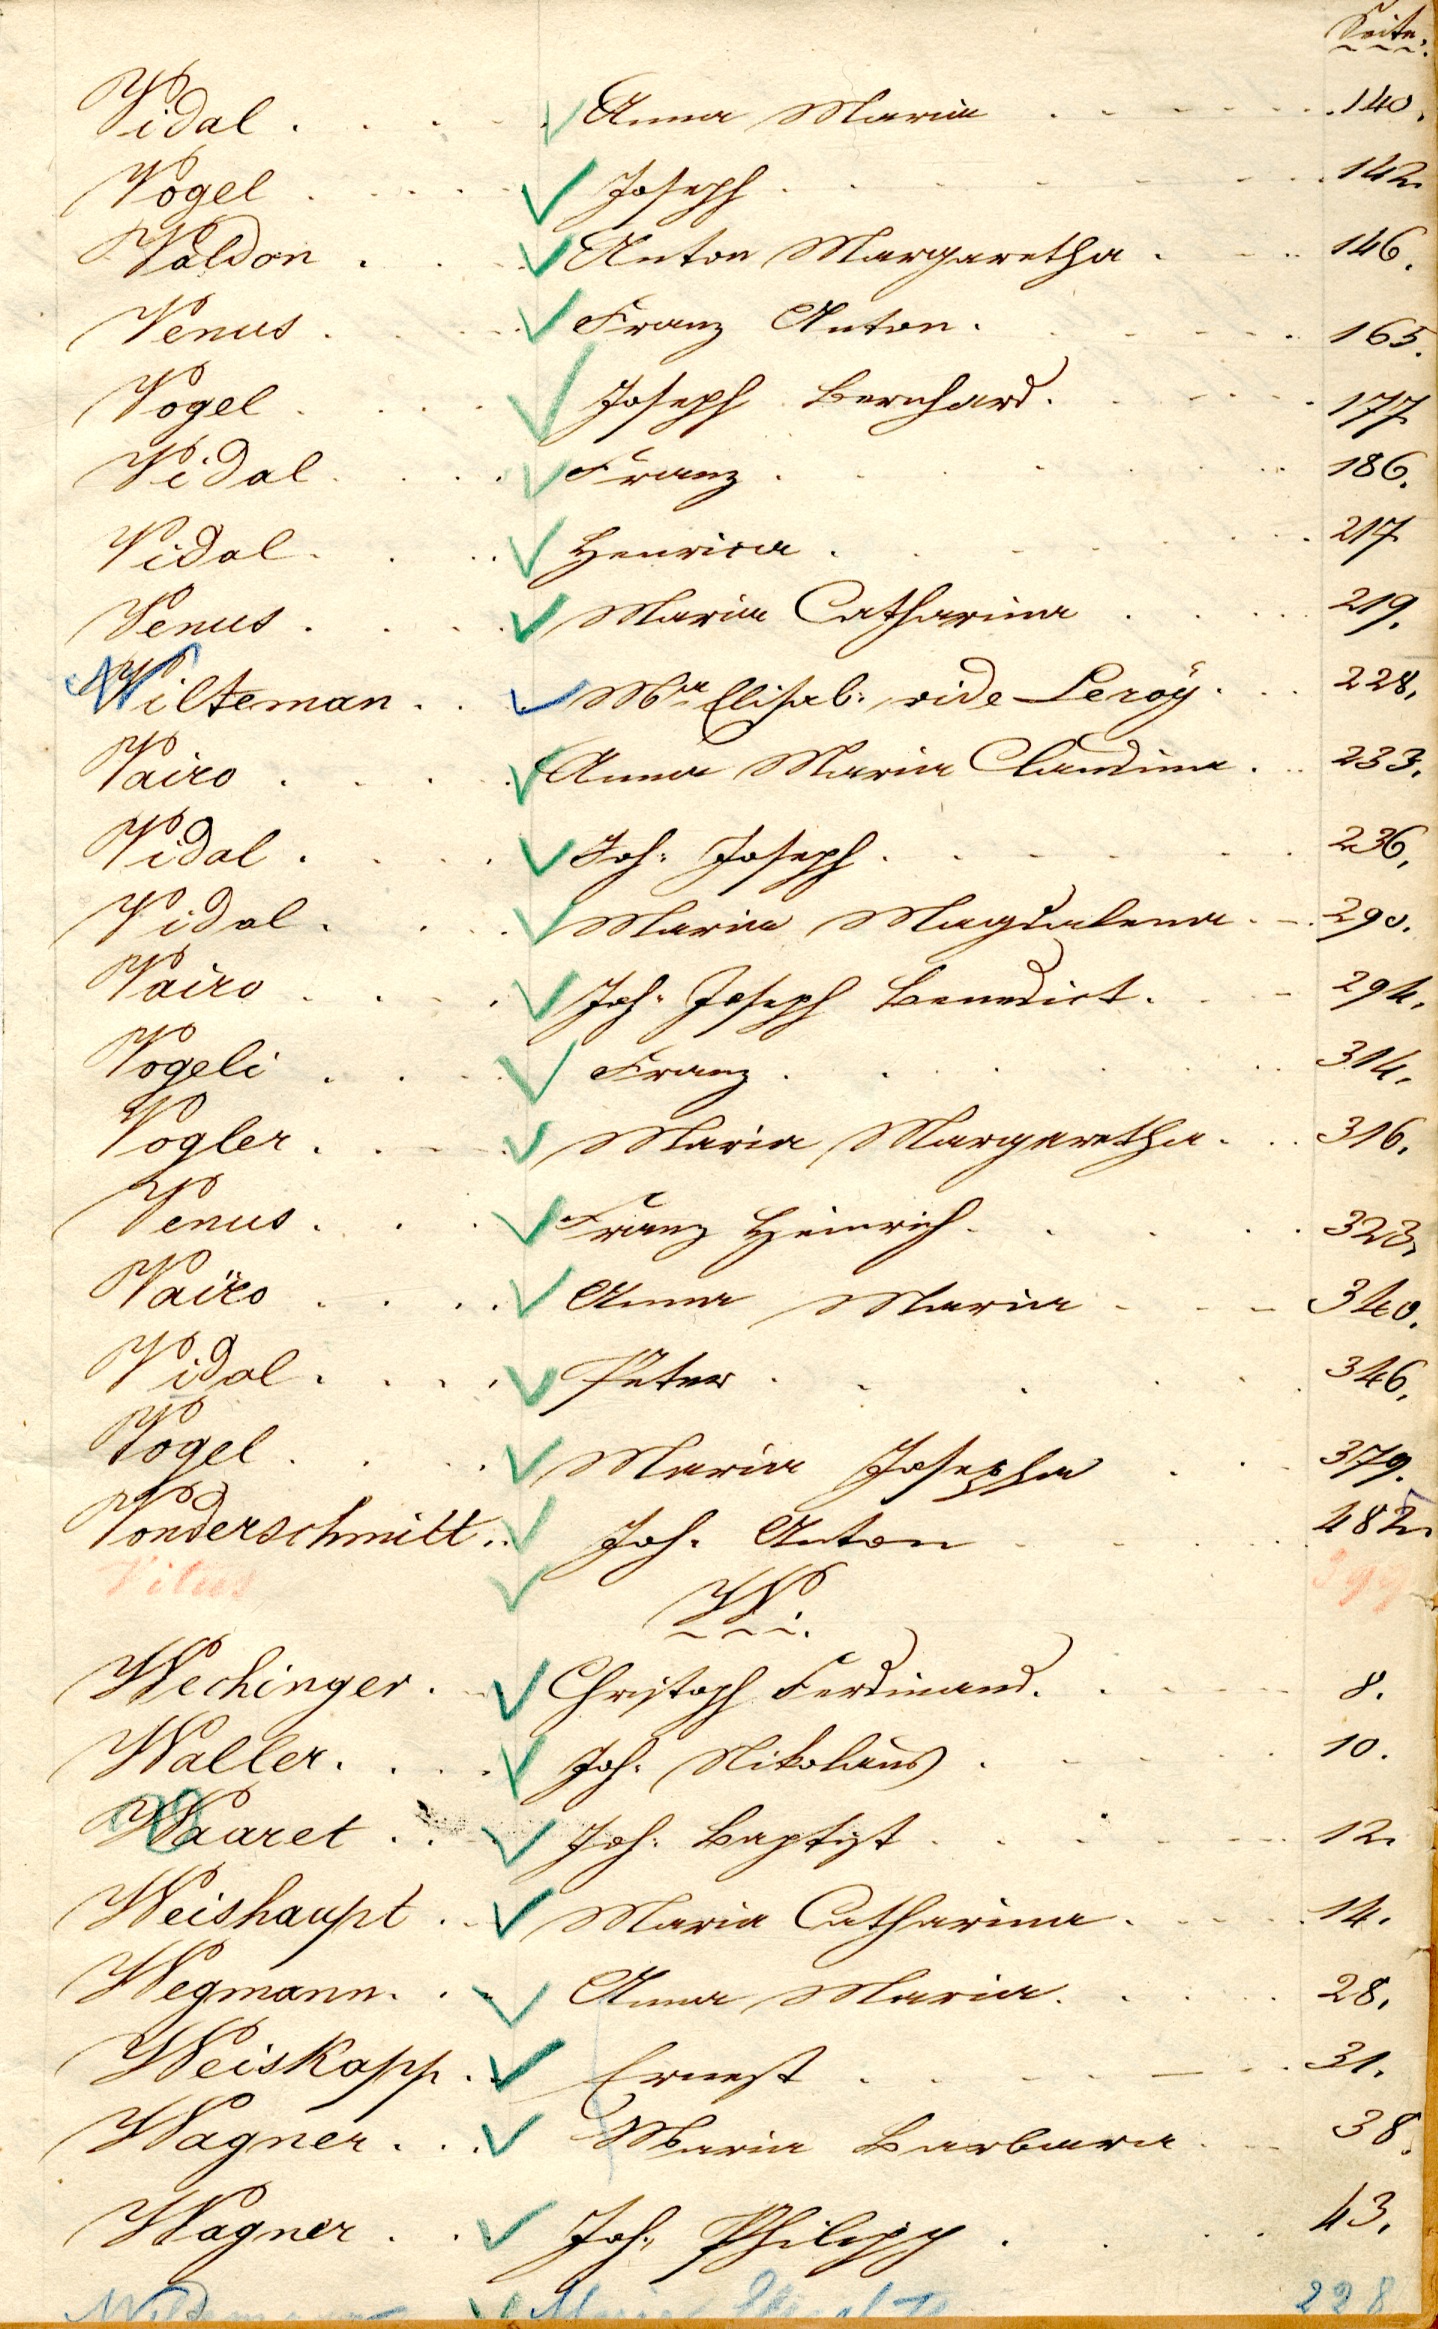 Seite.
Vidal . . . . Anna Maria . . . . . . 140.
Vogel . . . . Joseph . . . . . . 142.
Voldon . . . Anton Margaretha . . . 146.
Venus . . . . Franz Anton . . . . . 165.
Vogel . . . . Joseph Bernhard . . . . 177.
Vidal . . . . Franz . . . . . . 186.
Vidal . . . . Henrica . . . . . . 217.
Venus . . . . Maria Catharina . . . . 219.
Wilteman . . . Mª Elisab: vide Leroÿ . . . 228.
Vairo . . . . Anna Maria Claudina . . 233.
Vidal . . . . Joh: Joseph . . . . . . 236.
Vidal . . . . Maria Magdalena . . 290.
Vairo . . . . Joh: Joseph Benedict . . . 294.
Vogeli . . . . Franz . . . . . . 314.
Vogler . . . . Maria Margaretha . . . 316.
Venus . . . . Franz Heinrich . . . . 323.
Vairo . . . . Anna Maria . . . 340.
Vidal . . . . Peter . . . . . . 346.
Vogel . . . . Maria Josepha . . . 379.
Vonderschmitt . . Joh. Anton . . . . 482.
Vitus 399
W.
Wechinger . . Christoph Ferdinand . . . . 8.
Waller . . . . Joh: Nikolaus . . . . 10.
Waaret . . . Joh: Baptist . . . . . 12.
Weishaupt . . Maria Catharina . . . . 14.
Wegmann . . . Anna Maria . . . . 28.
Weiskopp . . Ernest . . . . . . 31.
Wagner . . . Maria Barbara . . . 38.
Wagner . . . Joh: Philipp . . . . 43.
228